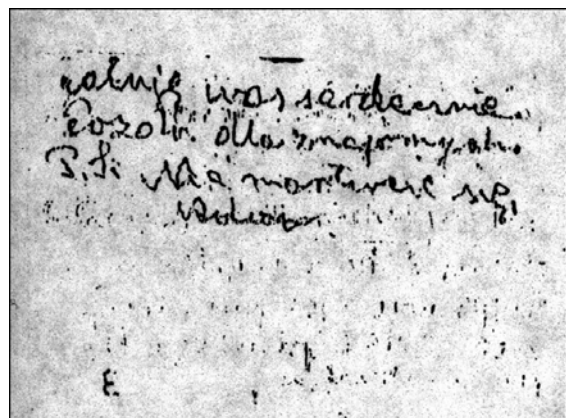 całuję was serdecznie.
Pozdr. dla znajomych.
P.S. Nie martwcie się